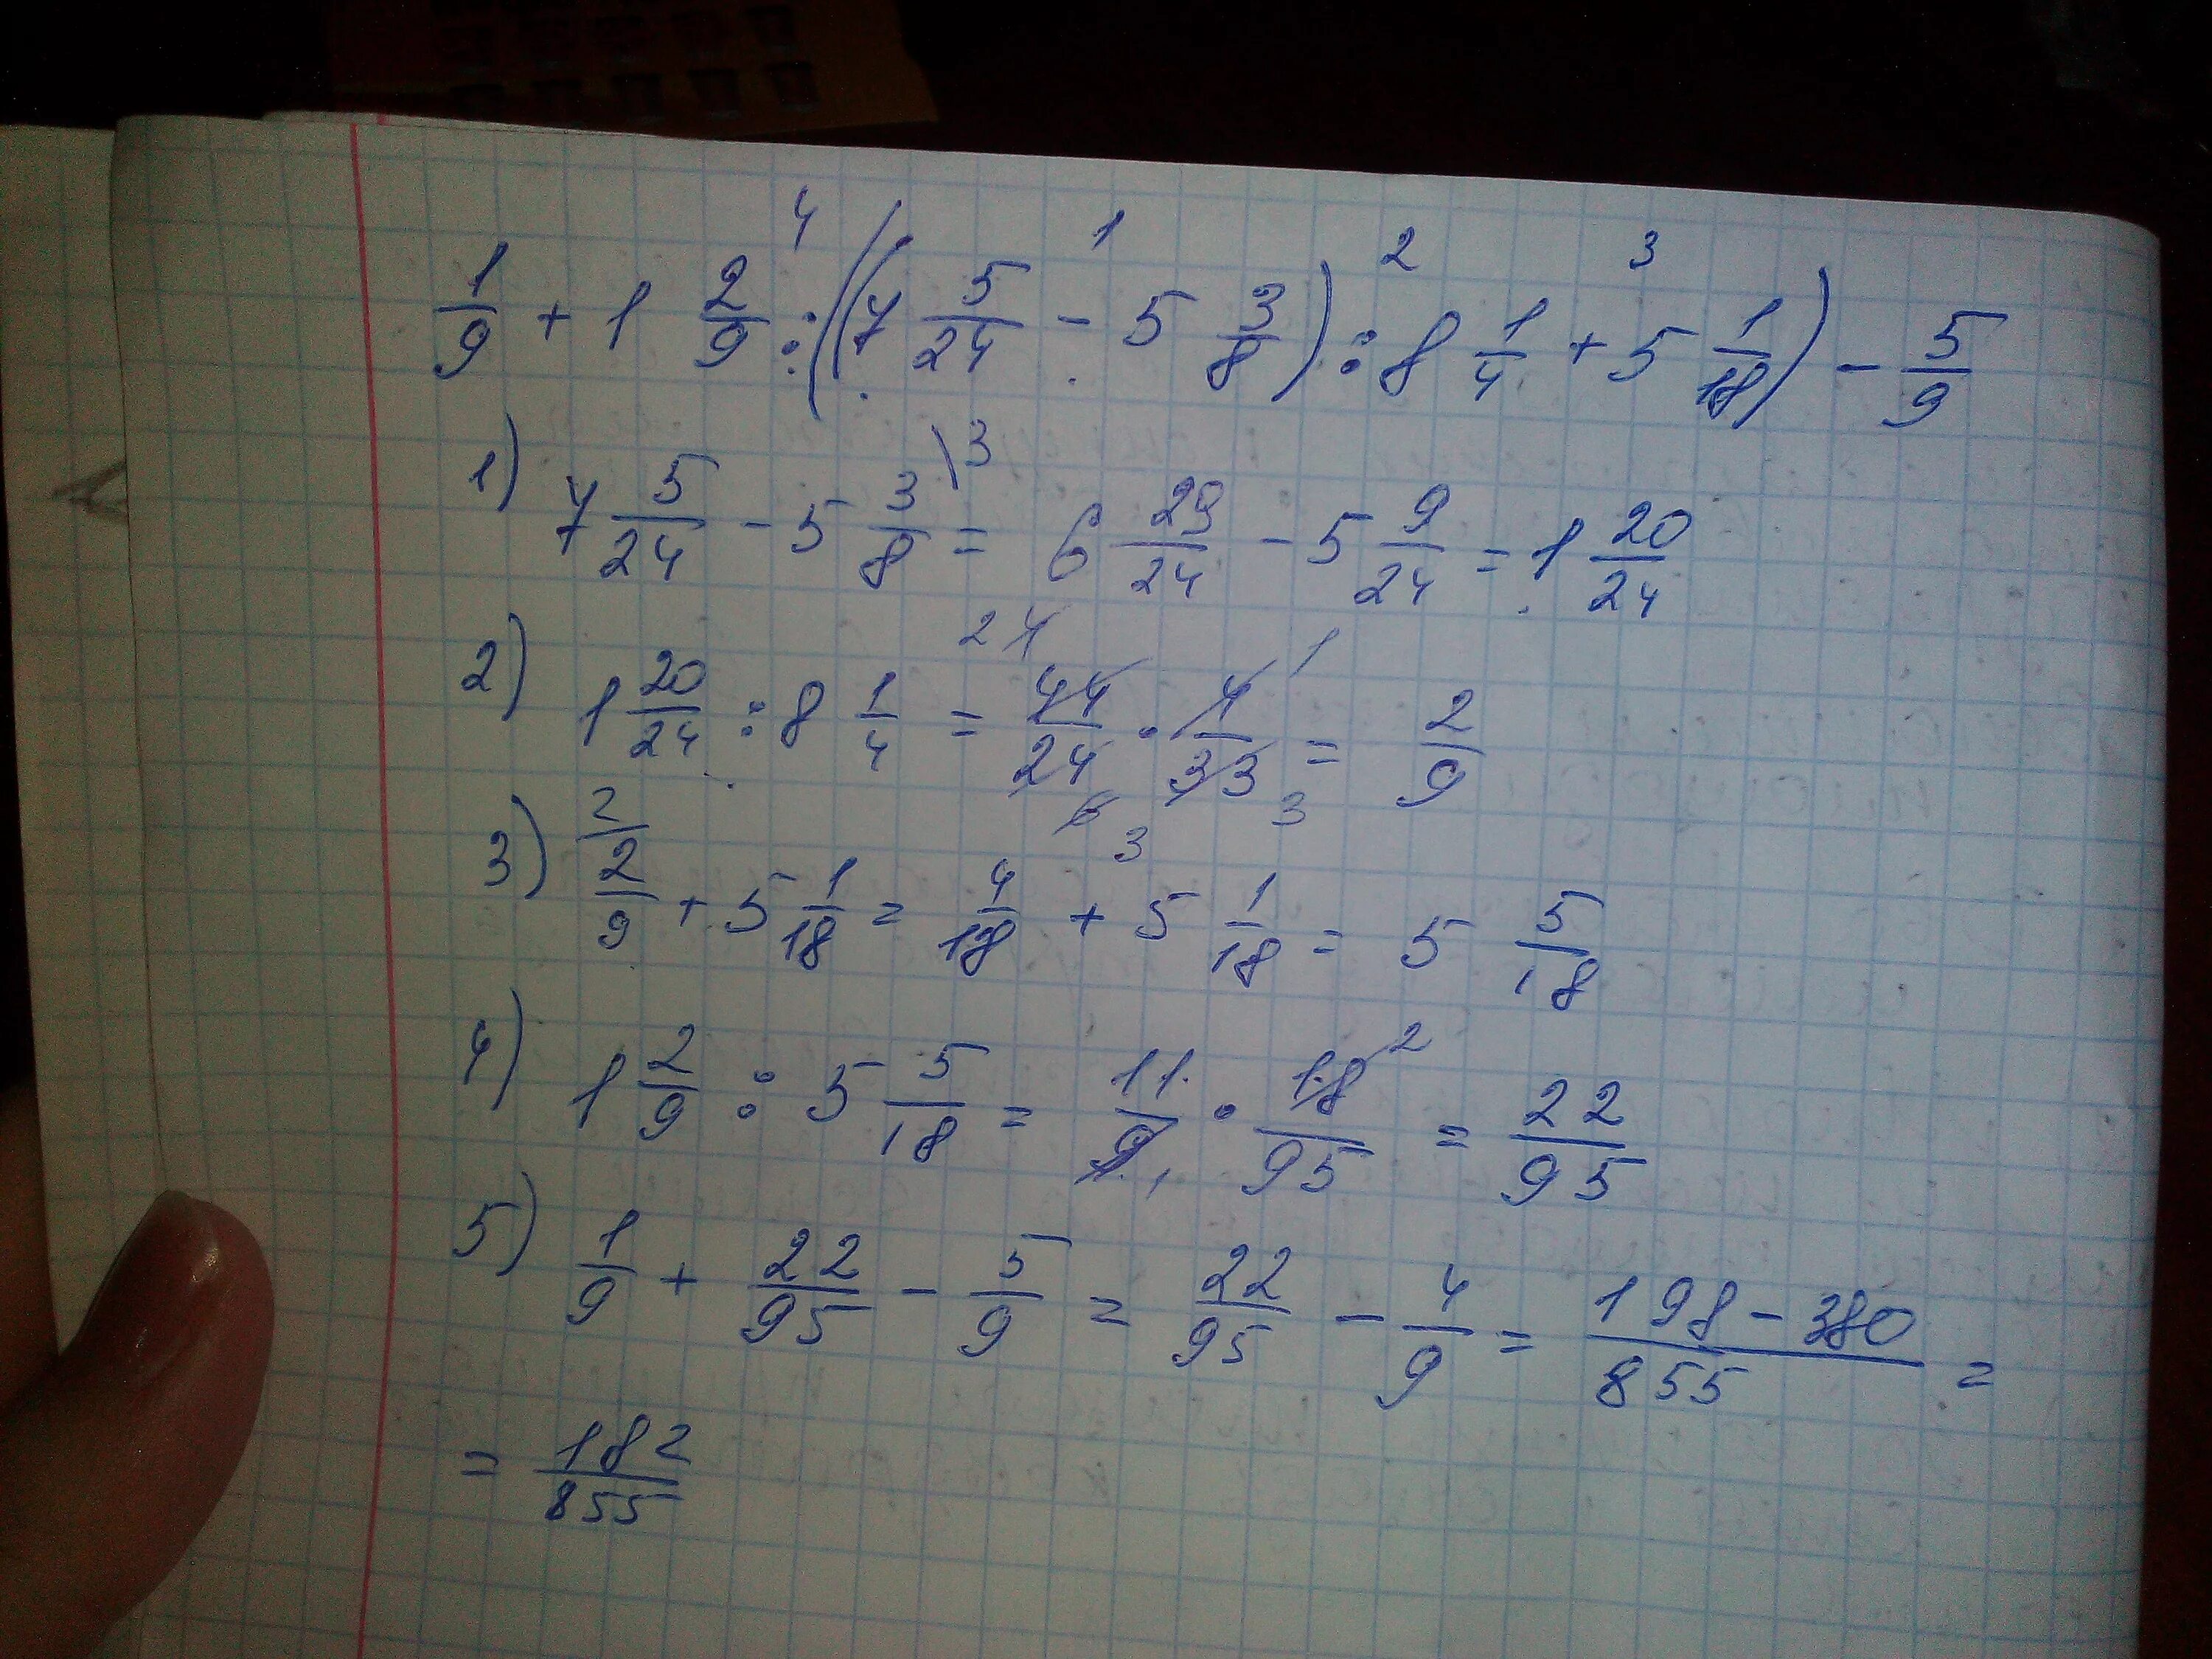 4 1 2 3
1/9 + 1 2/9 : ((7 5/24 - 5 3/8) : 8 1/4 + 5 1/18) - 5/9
1) 7 5/24 - 5 3/8 \3 = 6 29/24 - 5 9/24 = 1 20/24
2) 1 20/24 : 8 1/4 = 44/24 · 4/33 = 2/9
3) 2/9 + 5 1/18 = 4/18 + 5 1/18 = 5 5/18
4) 1 2/9 : 5 5/18 = 11/9 · 18/95 = 22/95
5) 1/9 + 22/95 - 5/9 = 22/95 - 4/9 = 198 - 380/855 =
= 182/855